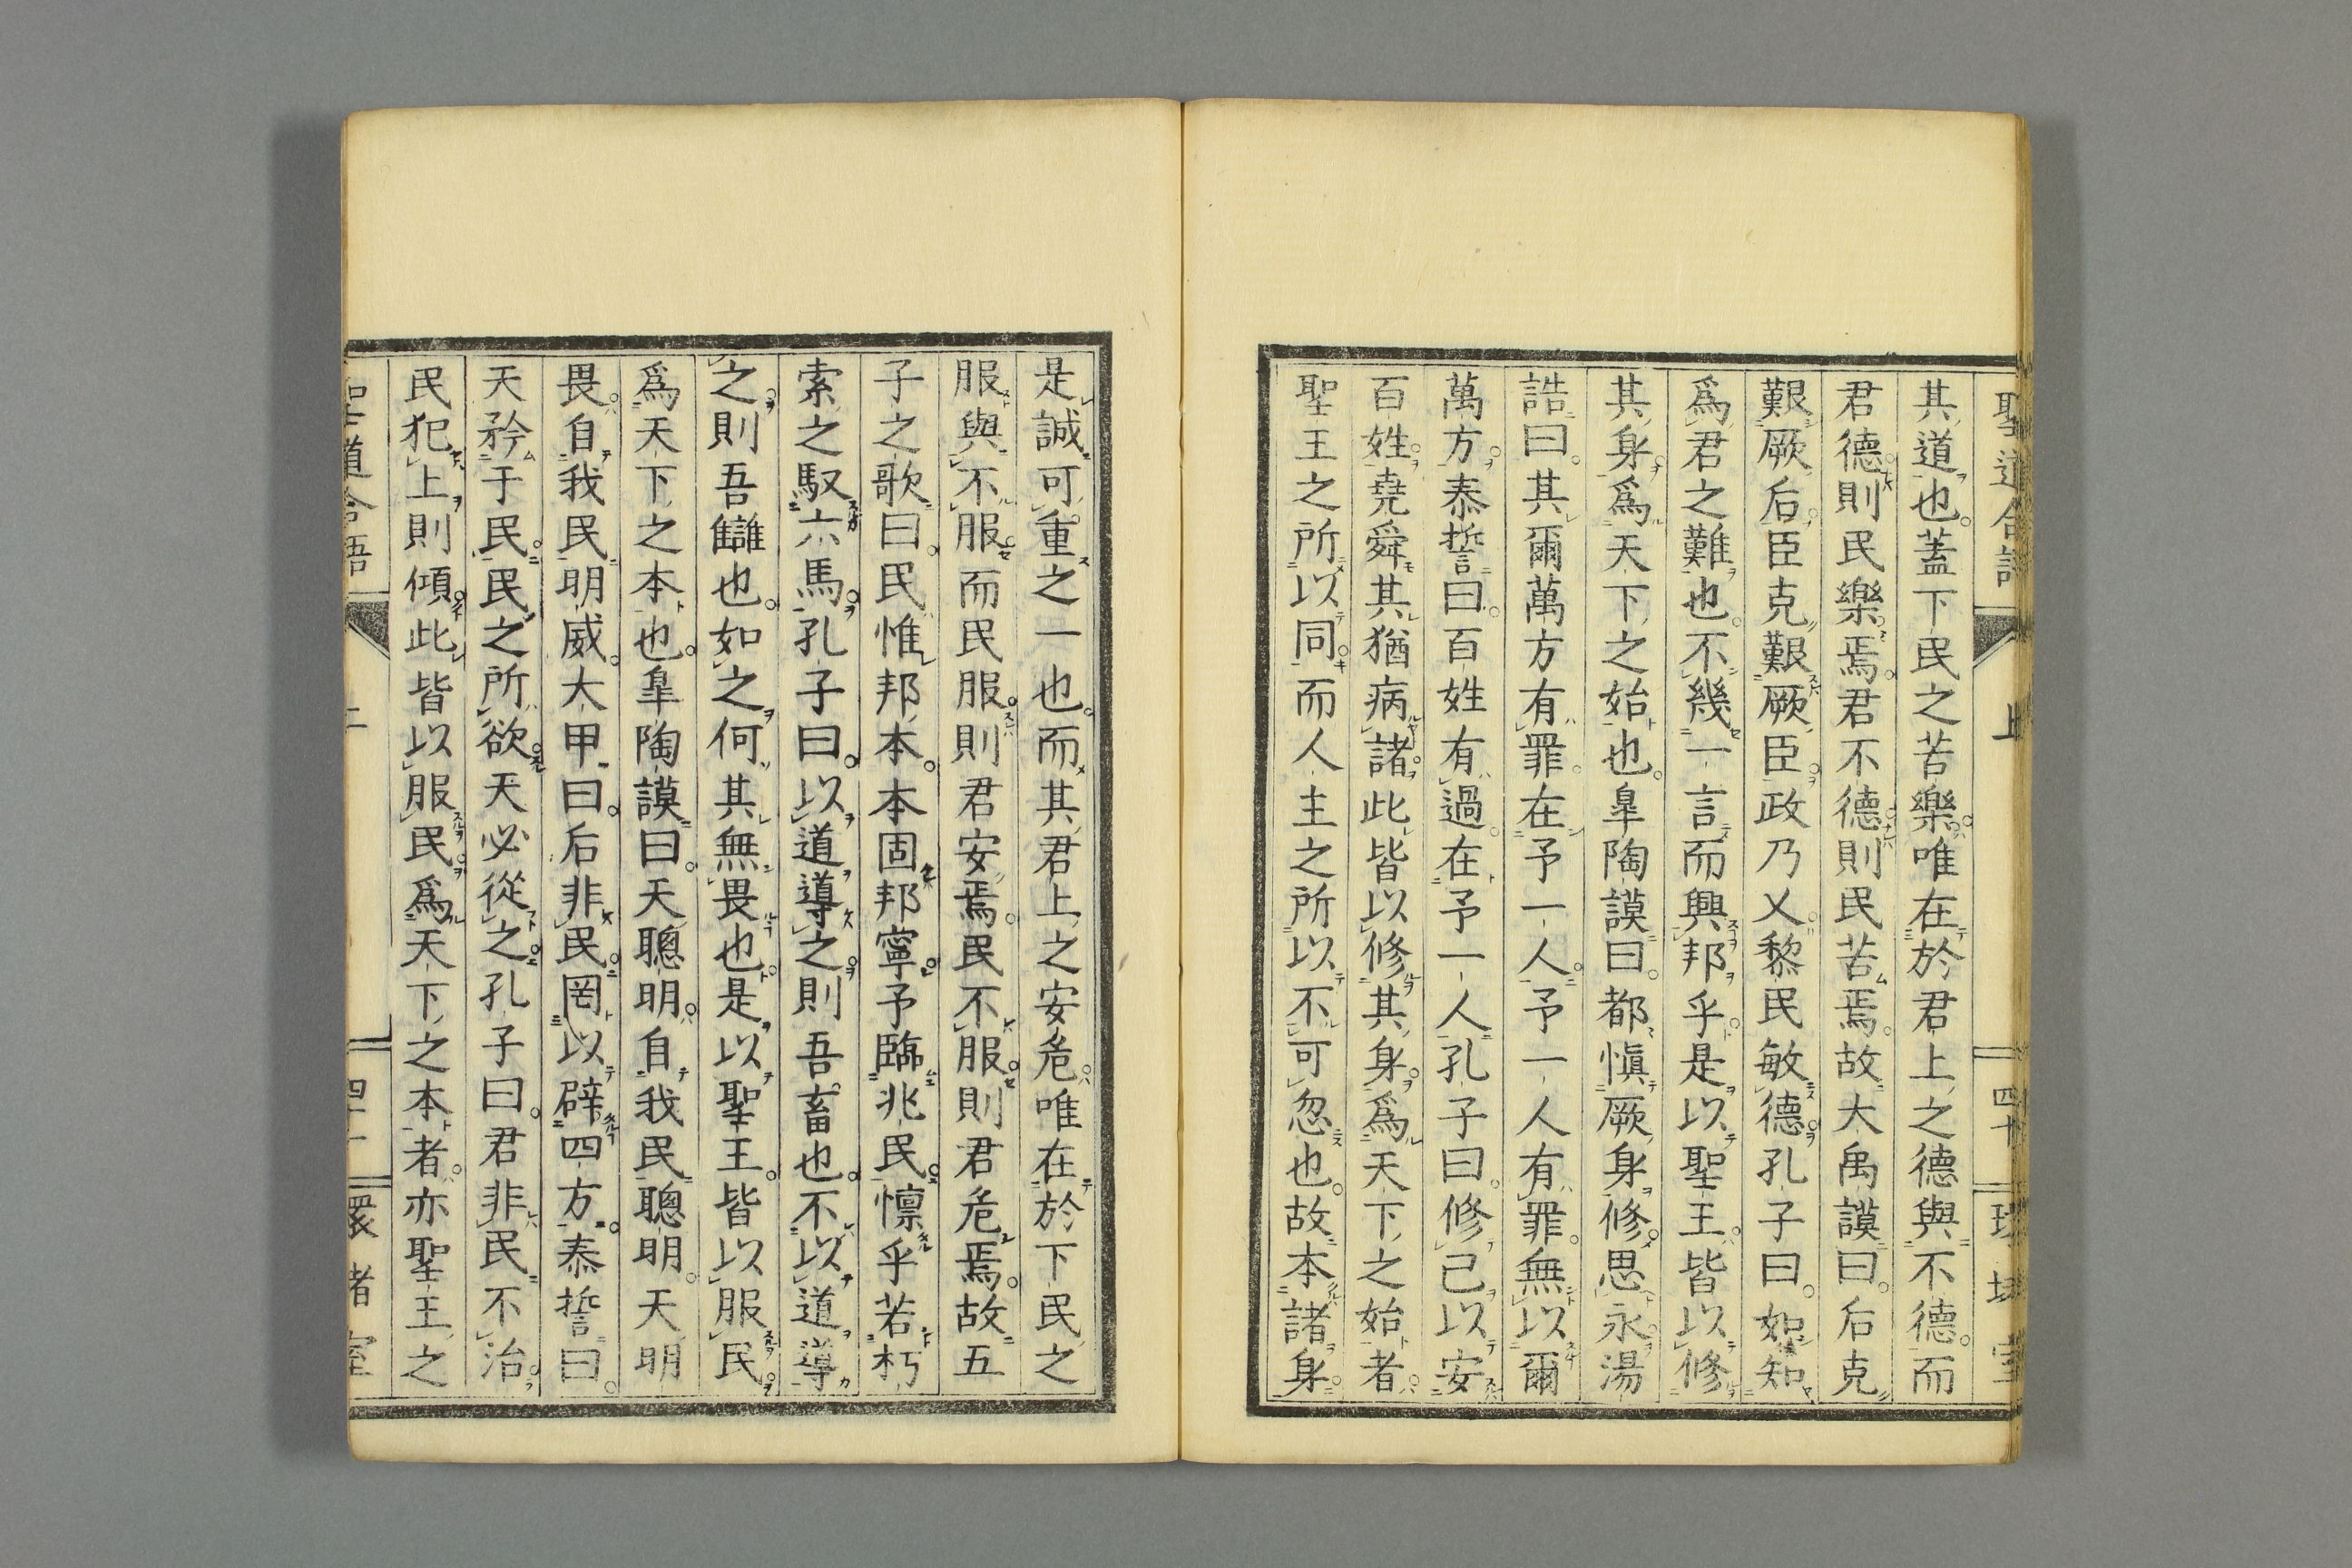 聖道合語 上 四十
其道也。蓋下民之苦樂。唯在於君上之德與不德。而
君德則民樂焉。君不德則民苦焉。故大禹謨曰。后克
艱厥后。臣克艱厥臣。政乃乂。黎民敏德。孔子曰。如知
爲君之難也。不幾一言而興邦乎。是以聖王。皆以修
其身。爲天下之始也。皐陶謨曰。都愼厥身。修思永。湯
誥曰。其爾萬方有罪。在予一人。予一人有罪。無以爾
萬方。泰誓曰。百姓有過。在予一人。孔子曰。修己以安
百姓。堯舜其猶病諸。此皆以修其身。爲天下之始者。
聖王之所以同。而人主之所以不可忽也。故本諸身。
是誠可重之一也。而其君上之安危。唯在於下民之
服與不服。而民服。則君安焉。民不服。則君危焉。故五
子之歌曰。民惟邦本。本固邦寧。予臨兆民。懍乎若朽
索之馭六馬。孔子曰。以道導之。則吾畜也。不以道導
之。則吾讎也。如之何其無畏也。是以聖王。皆以服民。
爲天下之本也。皐陶謨曰。天聰明。自我民聰明。天明
畏。自我民明威。大甲曰。后非民。罔以辟四方。泰誓曰。
天矜于民。民之所欲。天必從之。孔子曰。君非民不治。
民犯上則傾。此皆以服民。爲天下之本者。亦聖王之
聖道合語 上 四十一 環堵室